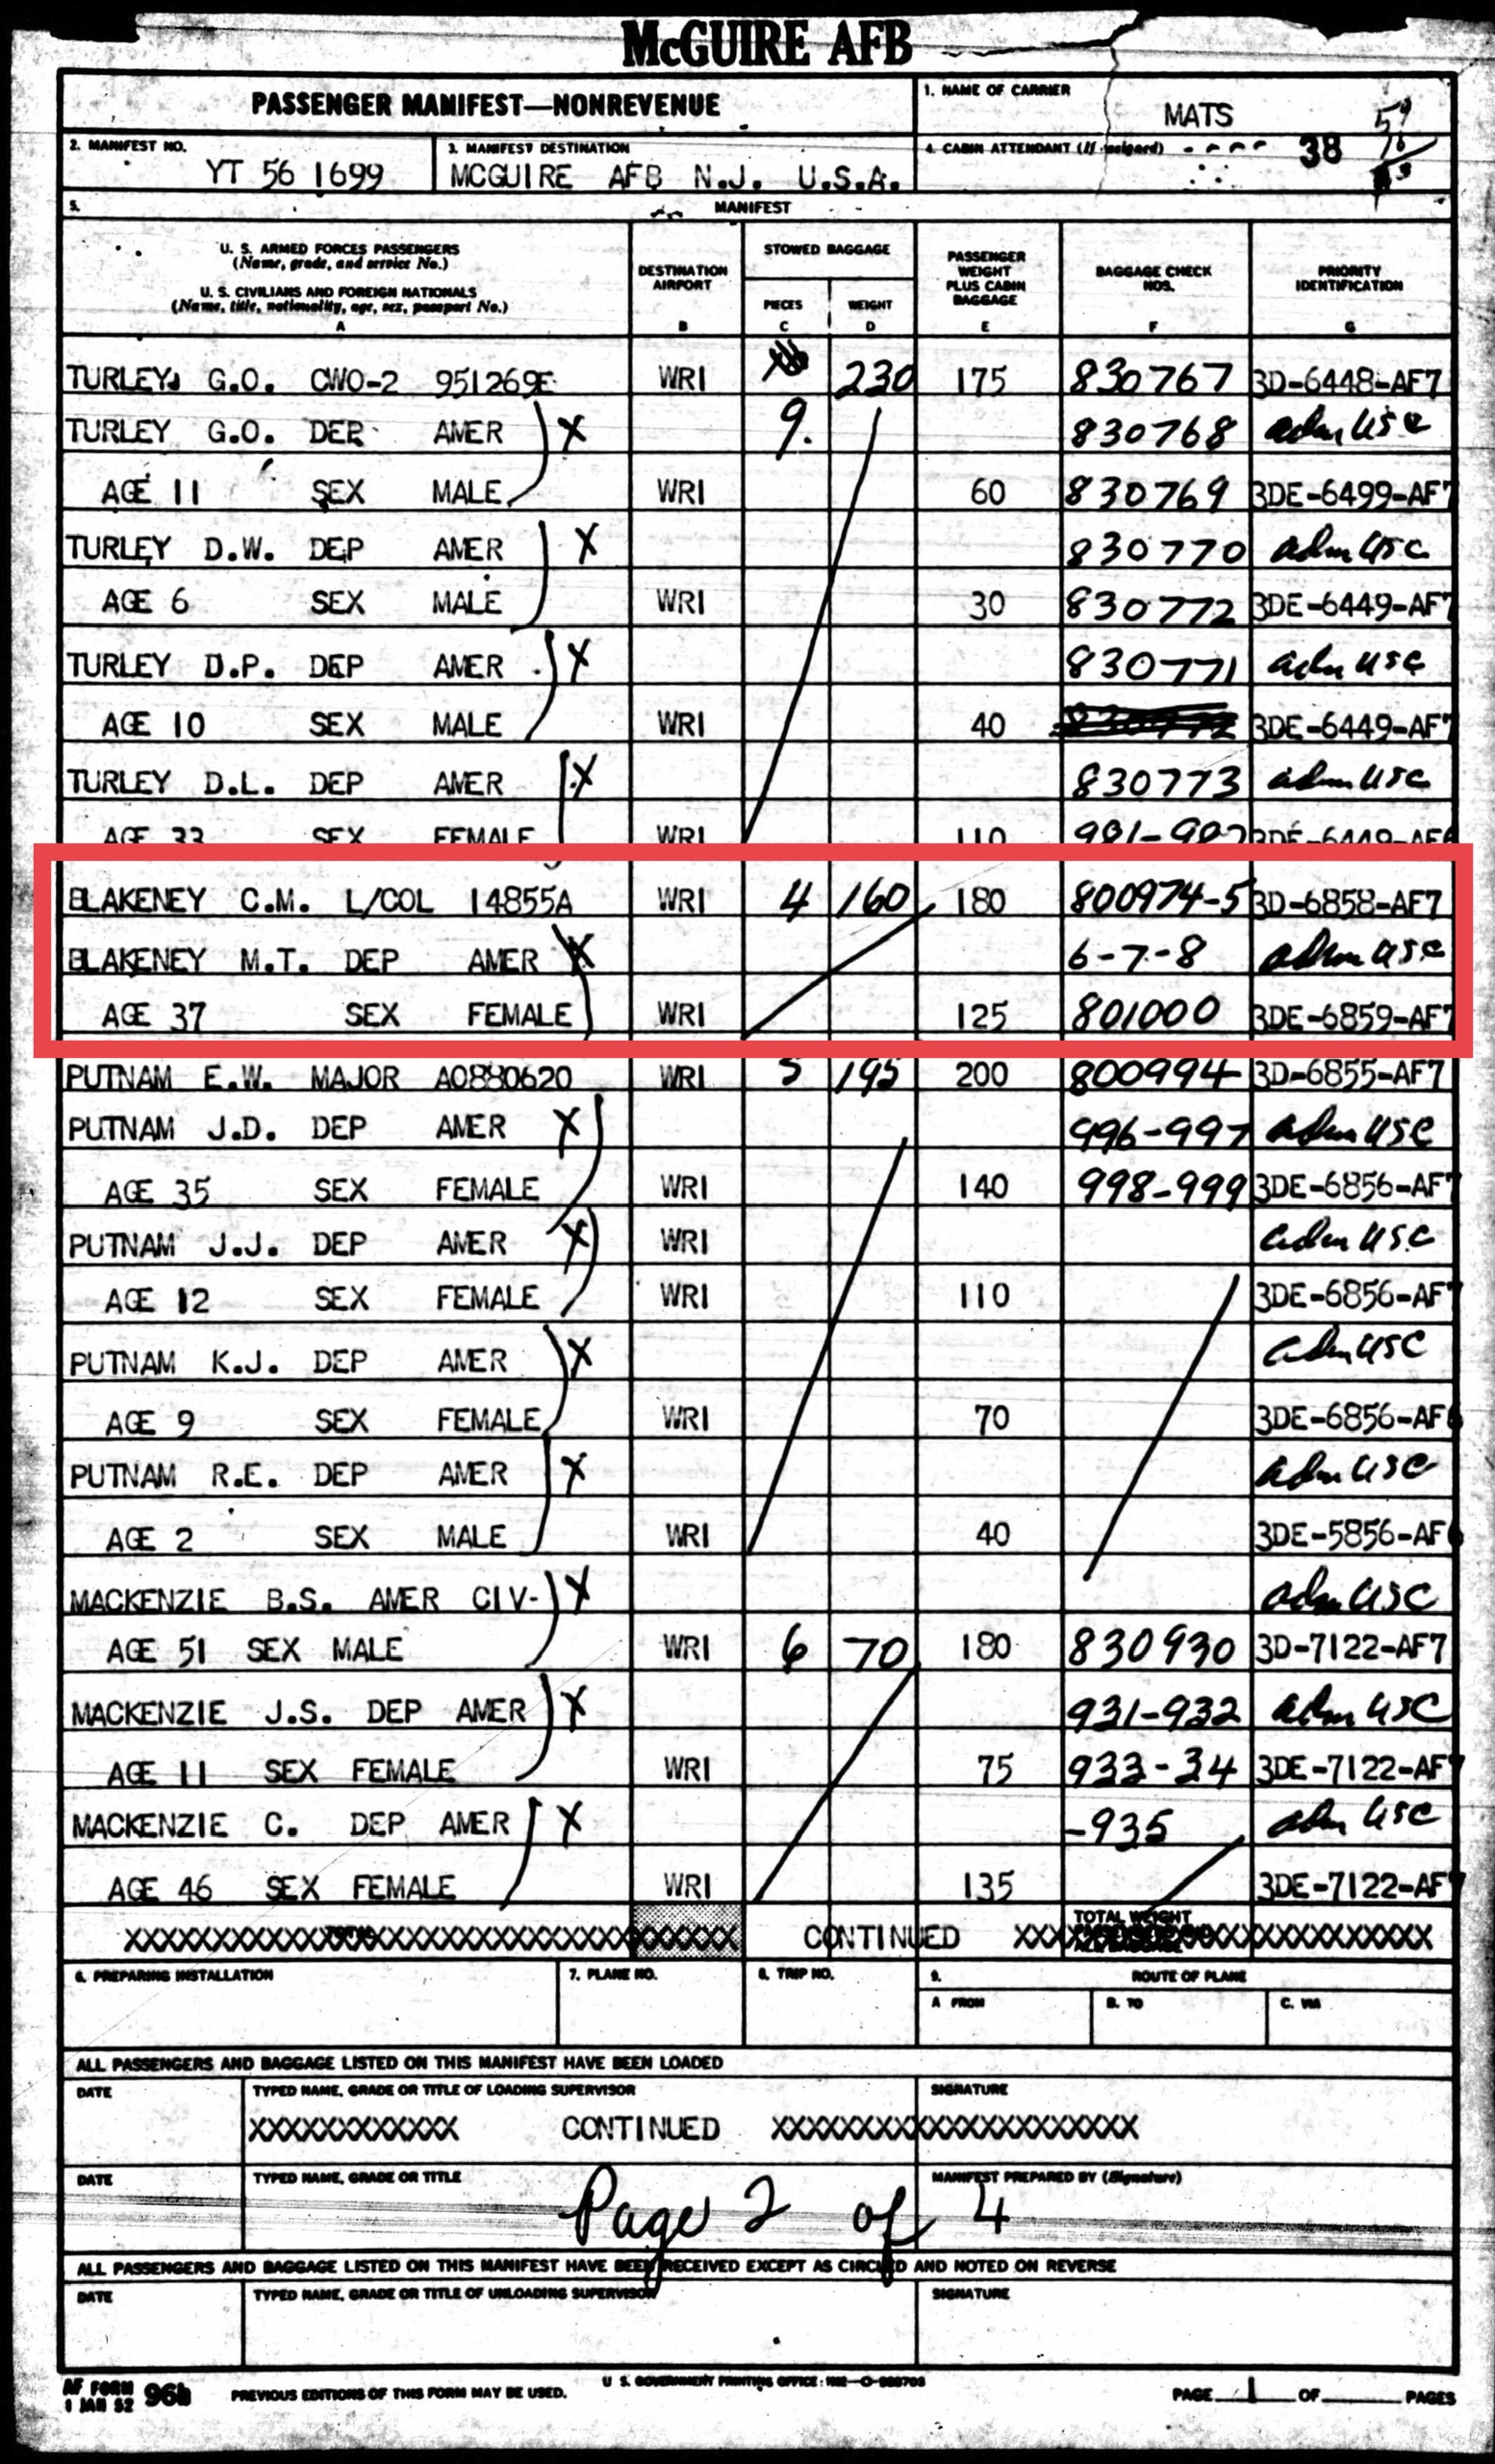 McGUIRE AFB
PASSENGER MANIFEST—NONREVENUE
1. NAME OF CARRIER
MATS
2. MANIFEST NO.
YT 56 1699
3. MANIFEST DESTINATION
MCGUIRE AFB N.J. U.S.A.
4. CABIN ATTENDANT (If assigned)
38
5. MANIFEST
U. S. ARMED FORCES PASSENGERS
(Name, grade, and service No.)
U. S. CIVILIANS AND FOREIGN NATIONALS
(Name, title, nationality, age, sex, passport No.)
A
DESTINATION AIRPORT
B
STOWED BAGGAGE
PIECES
C
WEIGHT
D
PASSENGER WEIGHT PLUS CABIN BAGGAGE
E
BAGGAGE CHECK NOS.
F
PRIORITY IDENTIFICATION
G
TURLEY G.O. CWO-2 951269E WRI 230 175 830767 3D-6448-AF7
TURLEY G.O. DEP AMER X 9. 830768 adm USC
AGE 11 SEX MALE WRI 60 830769 3DE-6499-AF7
TURLEY D.W. DEP AMER X 830770 adm USC
AGE 6 SEX MALE WRI 30 830772 3DE-6449-AF7
TURLEY D.P. DEP AMER X 830771 adm USC
AGE 10 SEX MALE WRI 40 3DE-6449-AF7
TURLEY D.L. DEP AMER X 830773 adm USC
AGE 33 SEX FEMALE WRI 110 981-982 3DE-6449-AF6
BLAKENEY C.M. L/COL 14855A WRI 4 160 180 800974-5 3D-6858-AF7
BLAKENEY M.T. DEP AMER X 6-7-8 adm USC
AGE 37 SEX FEMALE WRI 125 801000 3DE-6859-AF7
PUTNAM E.W. MAJOR AO880620 WRI 5 195 200 800994 3D-6855-AF7
PUTNAM J.D. DEP AMER X 996-997 adm USC
AGE 35 SEX FEMALE WRI 140 998-999 3DE-6856-AF7
PUTNAM J.J. DEP AMER X WRI adm USC
AGE 12 SEX FEMALE WRI 110 3DE-6856-AF7
PUTNAM K.J. DEP AMER X adm USC
AGE 9 SEX FEMALE WRI 70 3DE-6856-AF6
PUTNAM R.E. DEP AMER X adm USC
AGE 2 SEX MALE WRI 40 3DE-5856-AF6
MACKENZIE B.S. AMER CIV- X adm USC
AGE 51 SEX MALE WRI 6 70 180 830930 3D-7122-AF7
MACKENZIE J.S. DEP AMER X 931-932 adm USC
AGE 11 SEX FEMALE WRI 75 933-34 3DE-7122-AF7
MACKENZIE C. DEP AMER X -935 adm USC
AGE 46 SEX FEMALE WRI 135 3DE-7122-AF7
CONTINUED
TOTAL WEIGHT
6. PREPARING INSTALLATION
7. PLANE NO.
8. TRIP NO.
9. ROUTE OF PLANE
A FROM
B. TO
C. VIA
ALL PASSENGERS AND BAGGAGE LISTED ON THIS MANIFEST HAVE BEEN LOADED
DATE
TYPED NAME, GRADE OR TITLE OF LOADING SUPERVISOR
SIGNATURE
XXXXXXXXXXXX CONTINUED XXXXXXXXXXXXXXXXXXXXX
DATE
TYPED NAME, GRADE OR TITLE
MANIFEST PREPARED BY (Signature)
Page 2 of 4
ALL PASSENGERS AND BAGGAGE LISTED ON THIS MANIFEST HAVE BEEN RECEIVED EXCEPT AS CIRCLED AND NOTED ON REVERSE
DATE
TYPED NAME, GRADE OR TITLE OF UNLOADING SUPERVISOR
SIGNATURE
AF FORM 1 JAN 52 96b
PREVIOUS EDITIONS OF THIS FORM MAY BE USED.
U S. GOVERNMENT PRINTING OFFICE
PAGE 1 OF PAGES